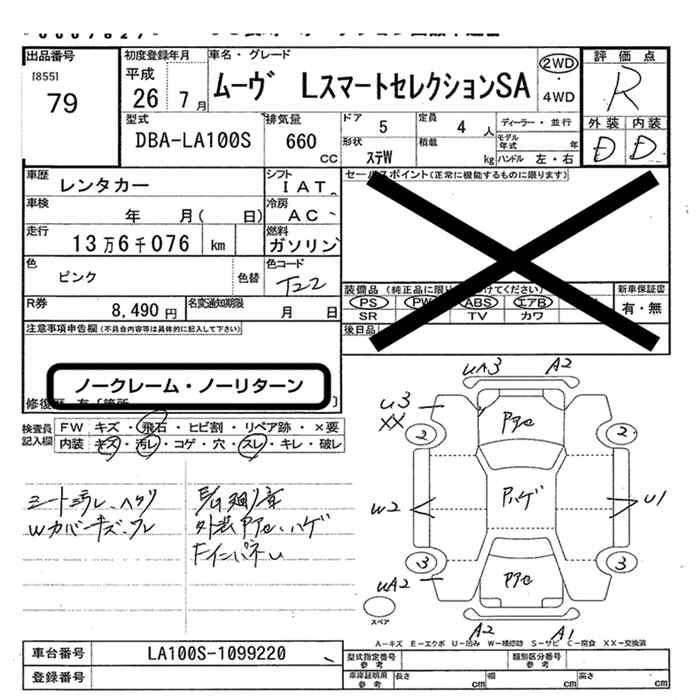 出品番号
[855]
79
初度登録年月
平成
26 7月
車名・グレード
ムーヴ LスマートセレクションSA
2WD
・
4WD
評価点
R
外装 内装
D D
型式
DBA-LA100S
排気量
660
CC
ドア 5
定員 4人
ディーラー・並行
形状
ステW
積載
kg
モデル年式 年
ハンドル 左・右
車歴
レンタカー
シフト
IAT
セールスポイント(正常に機能するものに限ります)
車検
年 月( 日)
冷房
AC
走行
13万6千076 km
燃料
ガソリン
色
ピンク
色替
色コード
T22
装備品
新車保証書
PS PW ABS エアB
有・無
SR TV カワ
後日品
R券
8,490円
名変通知期限
月 日
注意事項申告欄(不具合内容等は具体的に記入して下さい)
ノークレーム・ノーリターン
検査員
記入欄
FW キズ・飛石・ヒビ割・リペア跡・×要
内装 キズ・汚レ・コゲ・穴・スレ・キレ・破レ
シート汚レ、ヘタリ
外装Pアセ、ハゲ
UA3 A2
U3
XX
Pアセ
2 2
W2
Pハゲ
U1
3 3
UA2
Pアセ
スペア
A2 A1
A-キズ E-エクボ U-凹み W-補修跡 S-サビ C-腐食 XX-交換済
車台番号
LA100S-1099220
型式指定番号
参考
類別区分番号
参考
登録番号
車庫証明用
参考
長さ cm 幅 cm 高さ cm